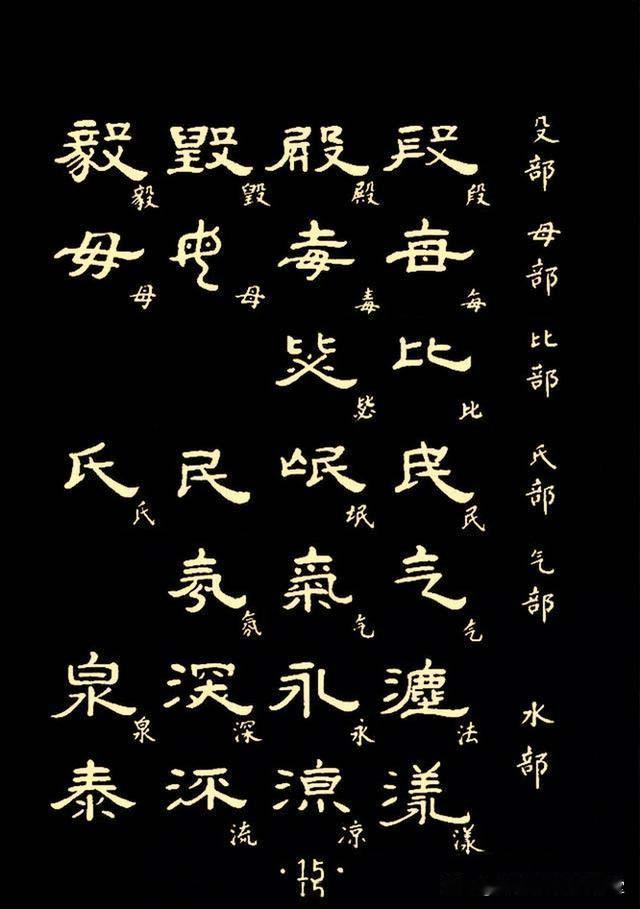 殳部
段 殿 毀 毅
段 殿 毁 毅
母部
每 毒 母 毋
每 毒 母 母
比部
比 毖
比 毖
氏部
民 氓 民 氏
民 氓 氏
气部
气 氣 氛
气 气 氛
水部
灋 永 深 泉
法 永 深 泉
漾 凉 流 泰
漾 凉 流
·15·